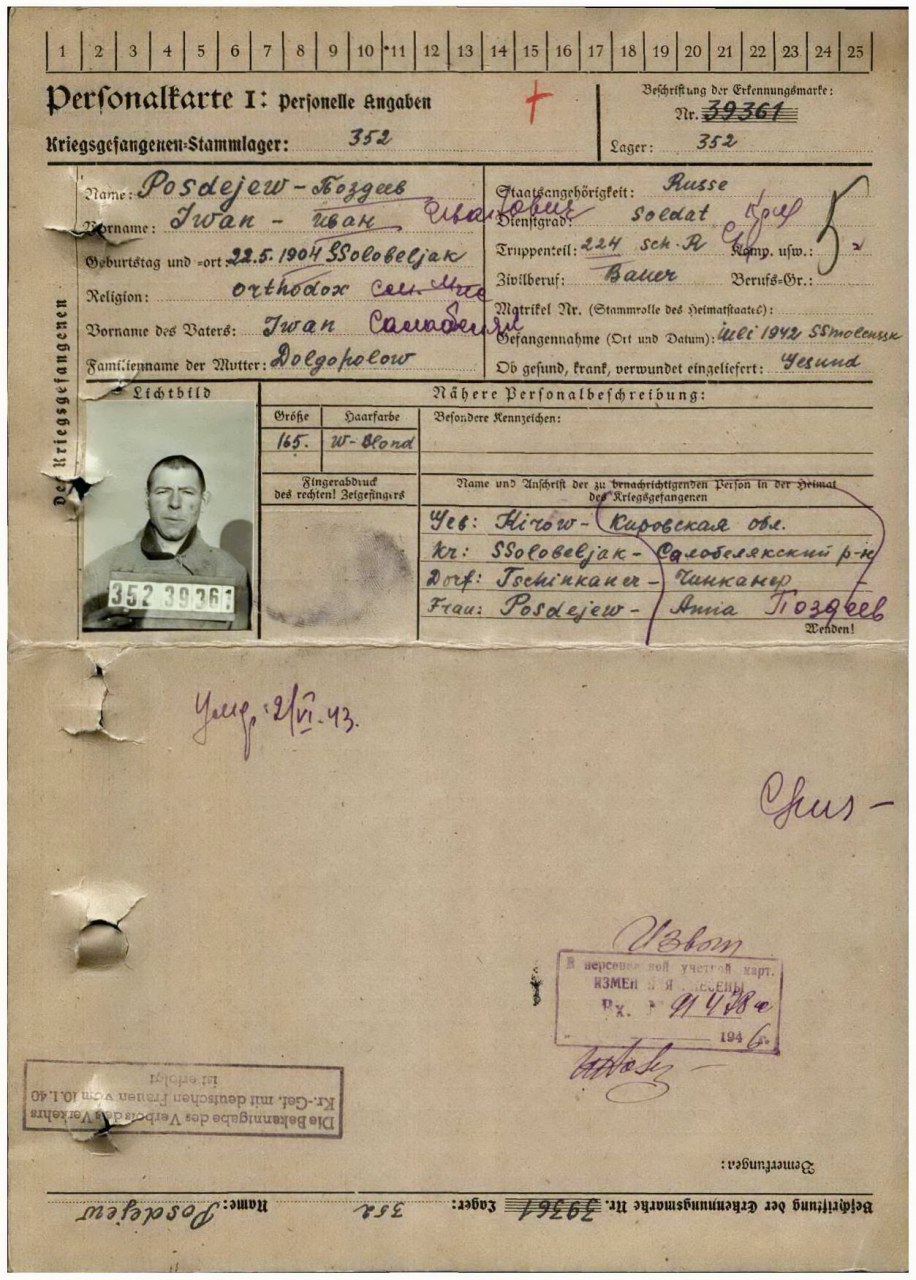 1 2 3 4 5 6 7 8 9 10 11 12 13 14 15 16 17 18 19 20 21 22 23 24 25
Personalkarte I: Personelle Angaben
Kriegsgefangenen-Stammlager: 352
Beschriftung der Erkennungsmarke:
Nr. 39361
Lager: 352
Des Kriegsgefangenen
Name: Posdejew - Поздеев
Vorname: Iwan - Иван Иванович
Geburtstag und -ort: 22.5.1904 SSolobeljak
Religion: orthodox
Vorname des Vaters: Iwan
Familienname der Mutter: Dolgopolow
Staatsangehörigkeit: Russe
Dienstgrad: Soldat
Truppenteil: 224 Sch. R Komp. usw.:
5
Zivilberuf: Bauer Berufs-Gr.:
Matrikel Nr. (Stammrolle des Heimatstaates):
Gefangennahme (Ort und Datum): Juli 1942 SSmolensk
Ob gesund, krank, verwundet eingeliefert: Gesund
Lichtbild
Nähere Personalbeschreibung:
Größe Haarfarbe Besondere Kennzeichen:
165. W-Blond
Fingerabdruck
des rechten! Zeigefingers
Name und Anschrift der zu benachrichtigenden Person in der Heimat
des Kriegsgefangenen
Geb: Kirow - Кировская обл.
Kr: SSolobeljak - Салобелякский р-н
Dorf: Tschinkaner - Чинканер
Frau: Posdejew - Anna Поздеев
Wenden!
352 39361
Умер 2/VI-43.
В персональной учетной карт.
ИЗМЕНЕНИЯ ВНЕСЕНЫ
Вх. №
1946 г.
Die Bekanntgabe des Verbots des Verkehrs
Kr.-Gef. mit deutschen Frauen vom 10.1.40
ist erfolgt
Bemerkungen:
Beschriftung der Erkennungsmarke Nr. 39361 Lager: 352 Name: Posdejew